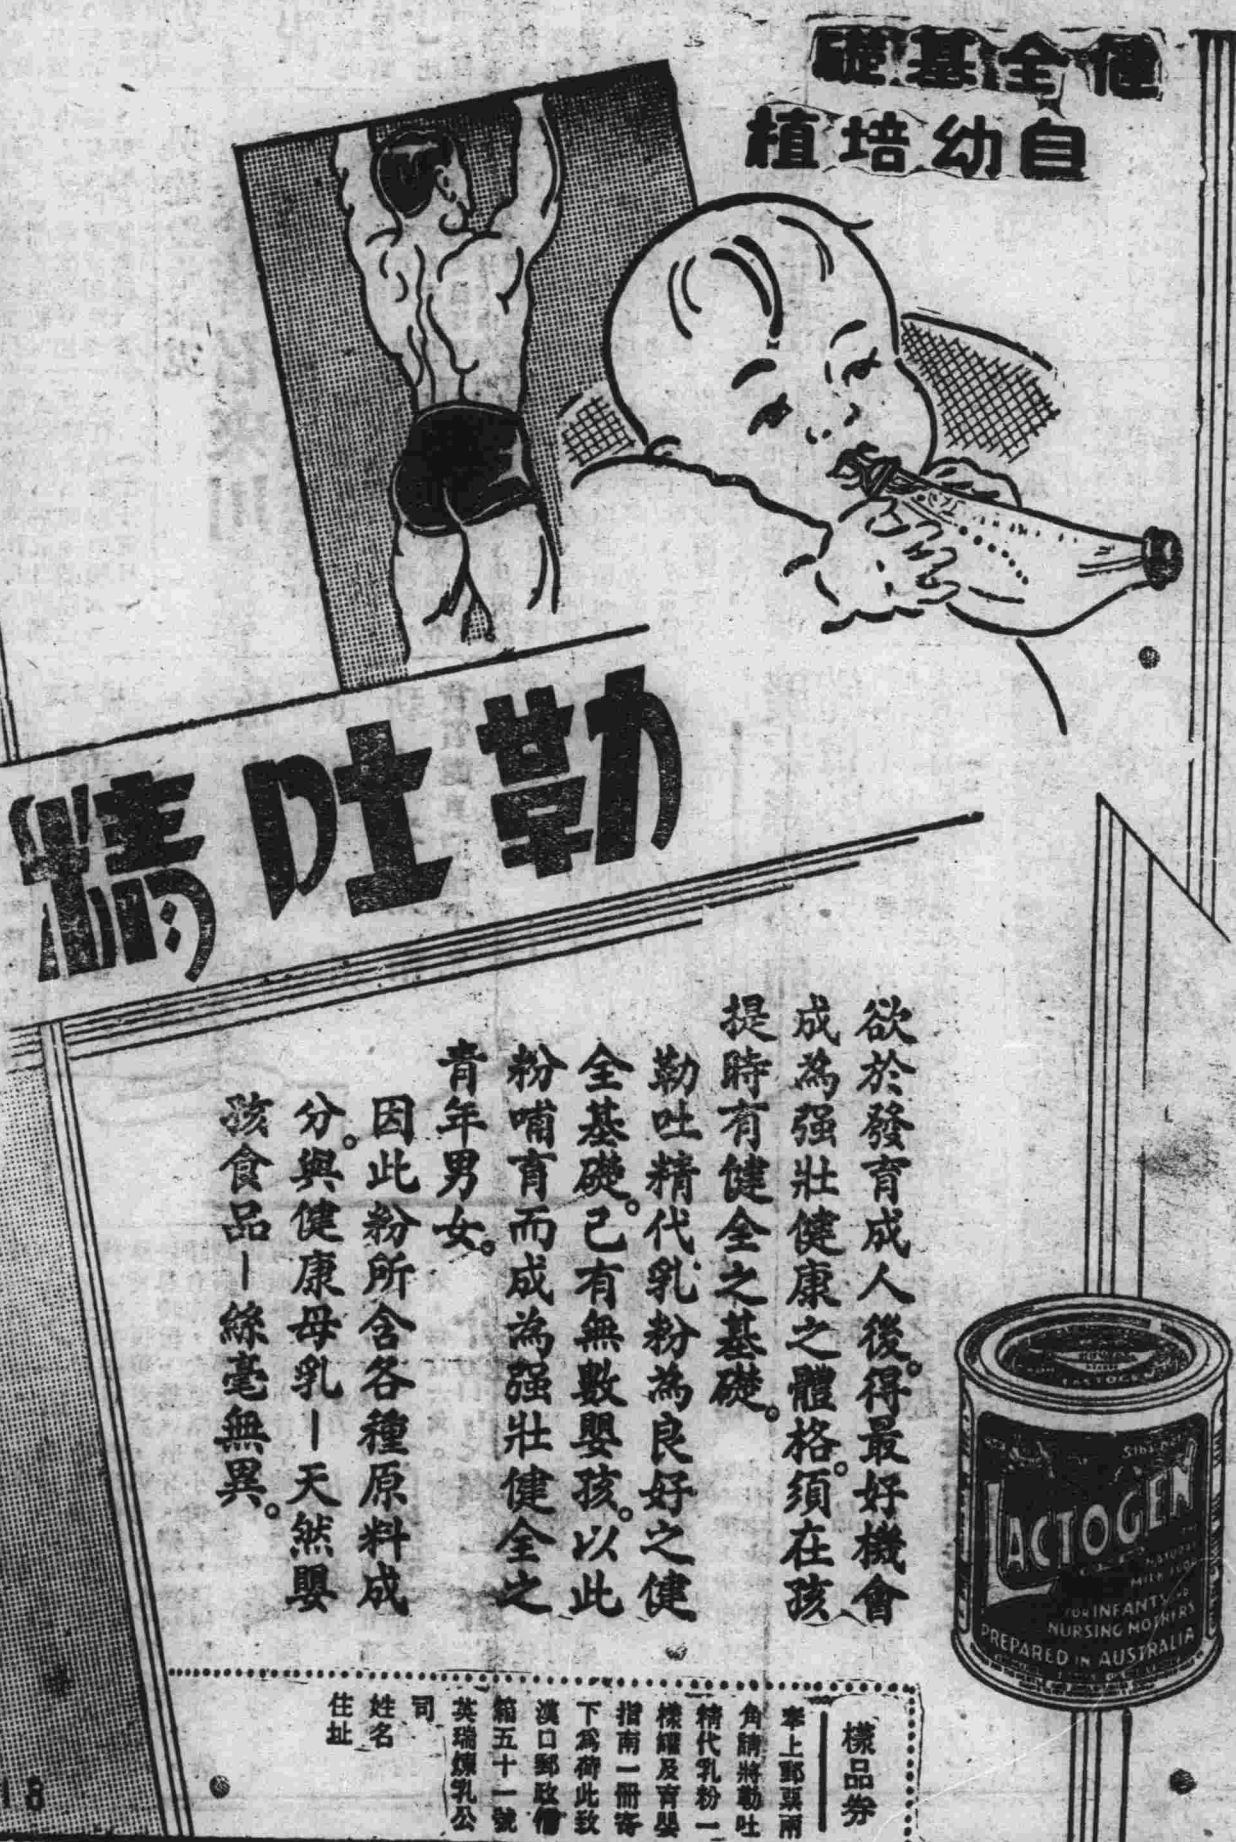 健全基礎
自幼培植
勒吐精
欲於發育成人後。得最好機會
成為强壯健康之體格。須在孩
提時有健全之基礎。
勒吐精代乳粉為良好之健
全基礎。已有無數嬰孩。以此
粉哺育而成為强壯健全之
青年男女。
因此粉所含各種原料成
分。與健康母乳－天然嬰
孩食品－絲毫無異。
LACTOGEN
NATURAL
MILK FOOD
FOR INFANTS AND
NURSING MOTHERS
PREPARED IN AUSTRALIA
樣品券
奉上郵票兩
角請將勒吐
精代乳粉一
樣罐及育嬰
指南一冊寄
下為荷此致
漢口郵政信
箱五十一號
英瑞煉乳公
司
姓名
住址
18